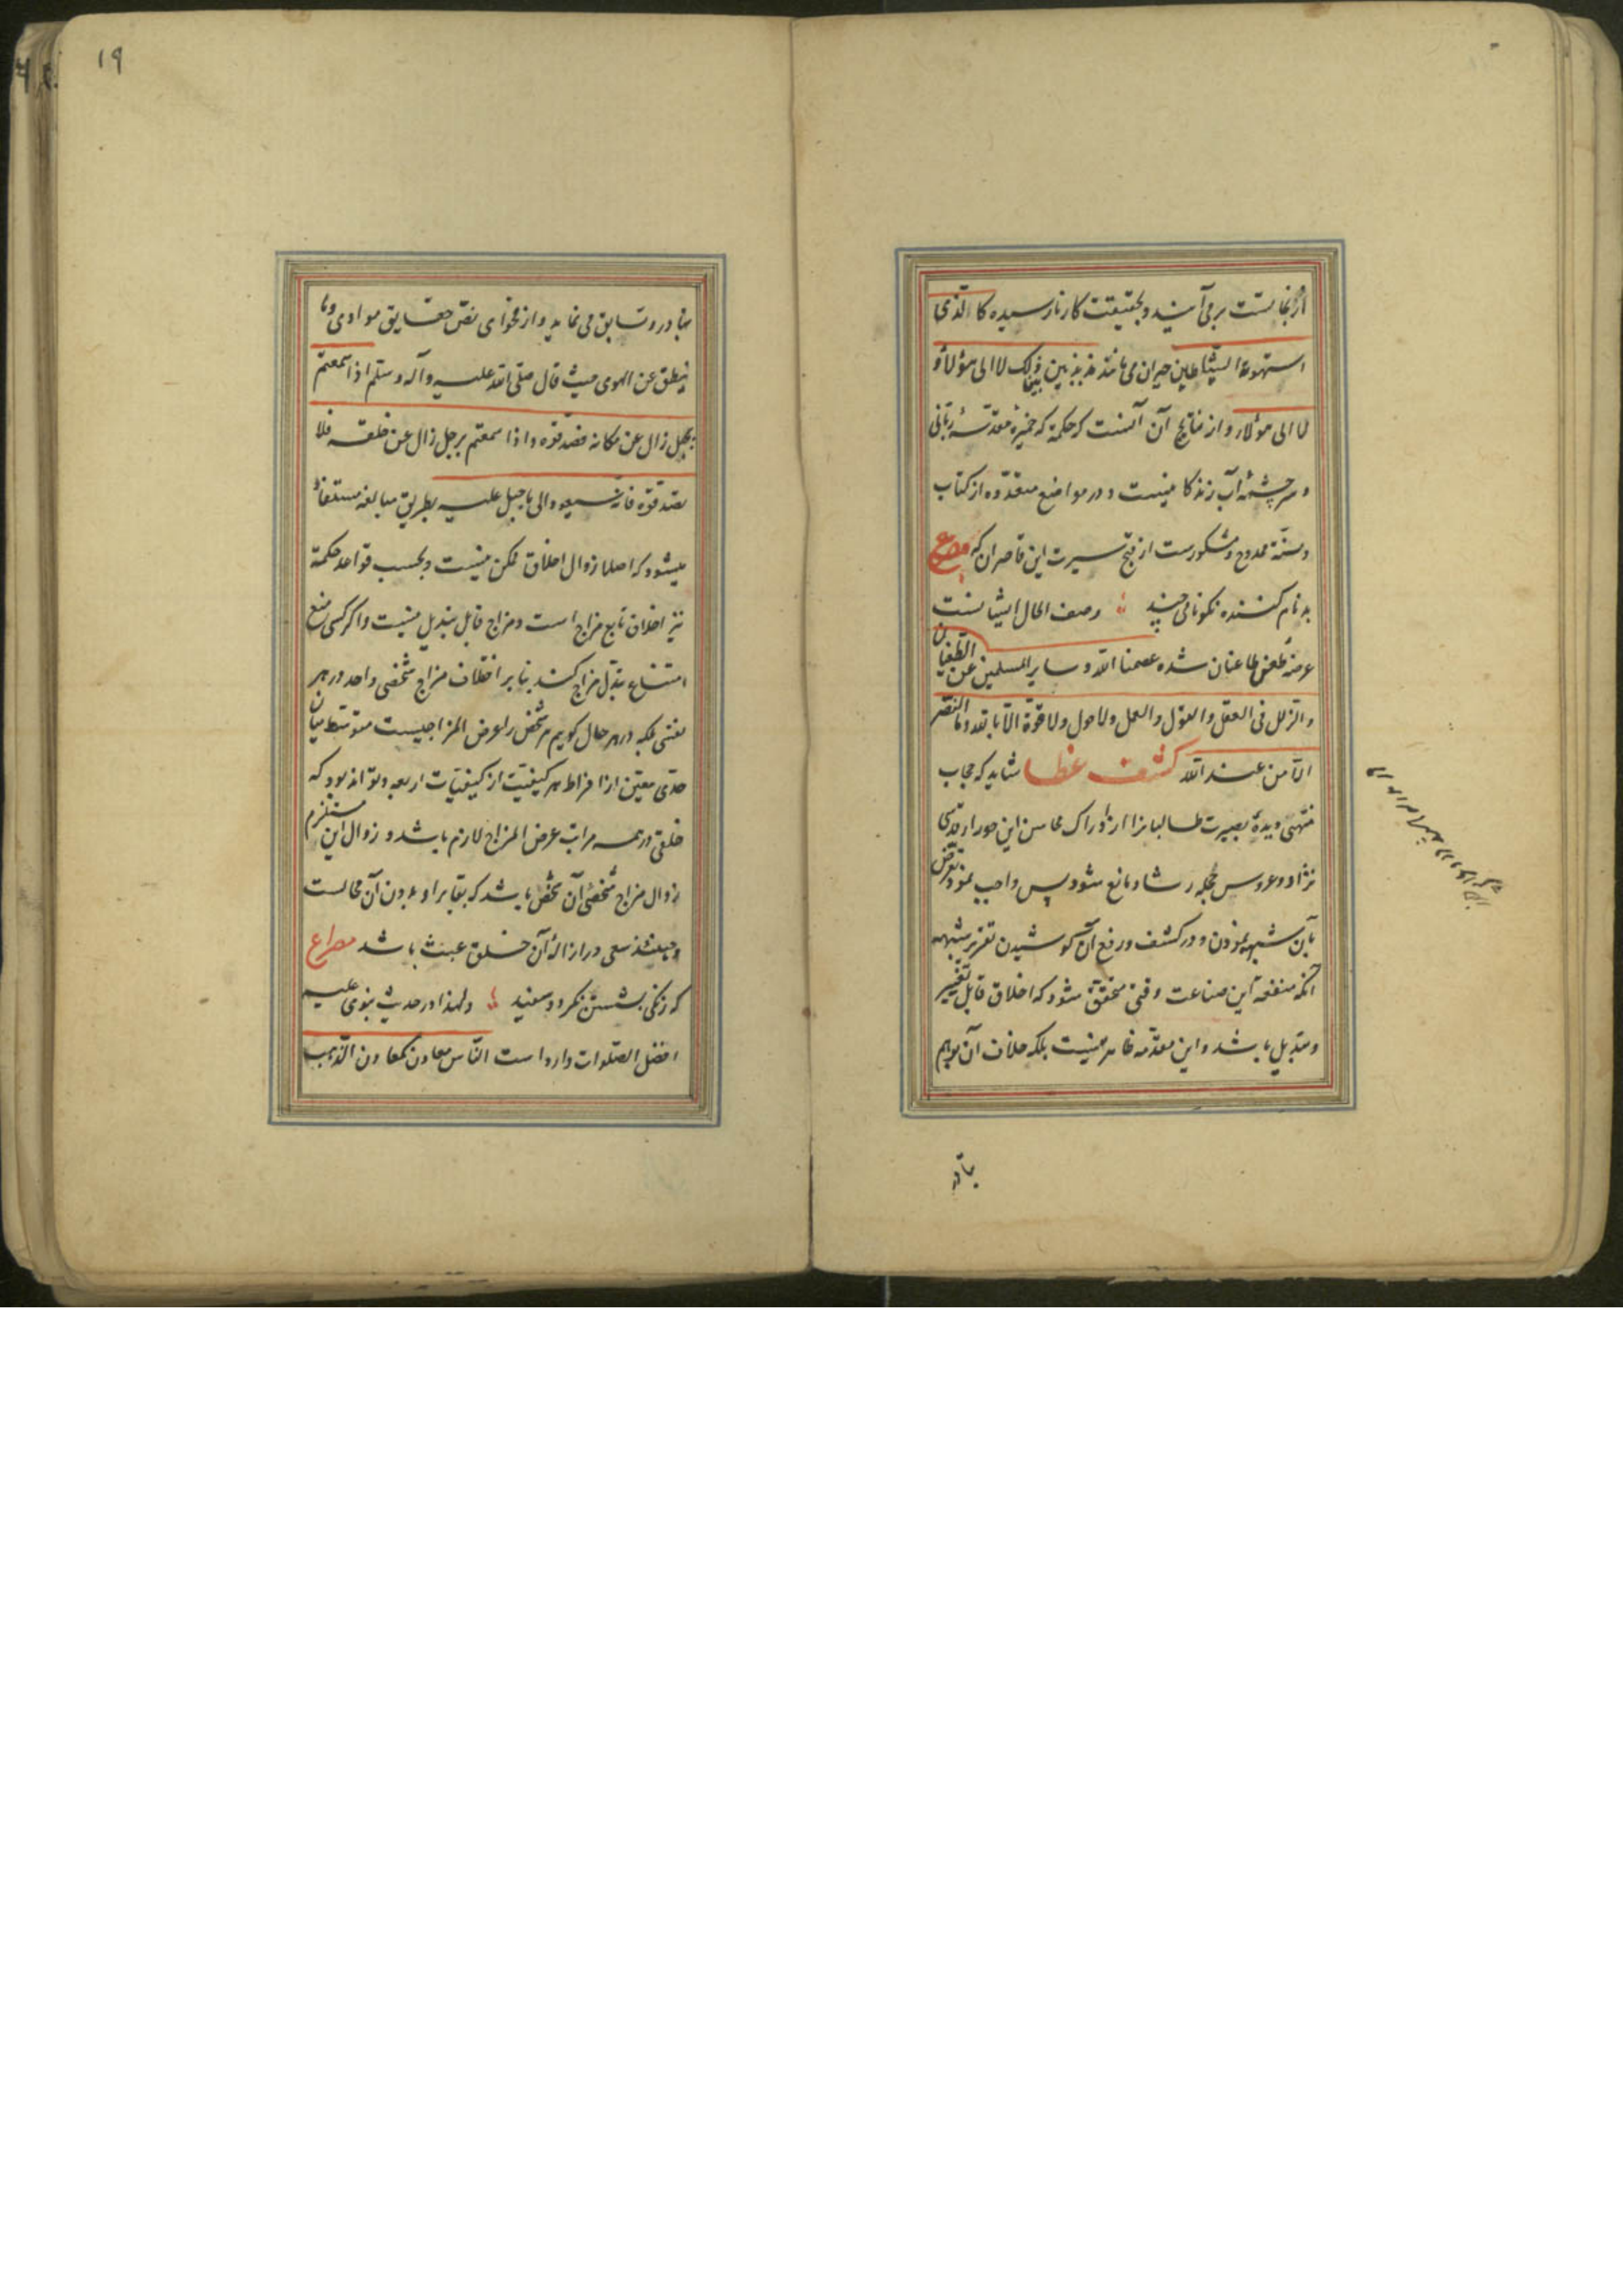 برمی‌آیند و بحقیقت کار نارسیده کالذی
استهوته الشیاطین حیران می‌مانند مذبذبین بین ذلک لا الی هؤلاء و
لا الی هؤلاء و از نتایج آن آنست که حکمة که خمیرهٔ مقدسهٔ ربانی
و سرچشمهٔ آب زندکانیست و در مواضع متعدده از کتاب
و سنة ممدوح و مشکورست از قبح سیرت این قاصران که مصرع
بدنام کننده نکونامی چند وصف الحال ایشانست
عرضهٔ طعن طاعنان شده عصمنا الله و سایر المسلمین عن الطغیان
و الزلل فی العقل و القول و العمل و لا حول و لا قوة الا بالله و ما النصر
الا من عند الله کشف غطا شاید که حجاب
منتهی دیدهٔ بصیرت طالبانرا از ادراک محاسن این حورا قدسی
نژاد و عروس حجلهٔ رشاد مانع شود پس واجب نمود تعرض
بآن شبهه نمودن و در کشف و رفع آن کوشیدن تقریر شبهه
آنکه منفعة این صناعت وقتی محقق شود که اخلاق قابل تغییر
و تبدیل باشد و این مقدمه ظاهر نیست بلکه خلاف آن بوهم
بتادر
١٩
بتادر و تسابق می‌نماید و از فحوای نص حقایق مودای و ما
ینطق عن الهوی حیث قال صلی الله علیه و آله و سلم اذا سمعتم
بجبل زال عن مکانه فصدقوه و اذا سمعتم برجل زال عن خلقه فلا
تصدقوه فانه سیعود الی ما جبل علیه بطریق مبالغه مستفاد
میشود که اصلا زوال اخلاق ممکن نیست و بحسب قواعد حکمة
نیز اخلاق تابع مزاج است و مزاج قابل تبدیل نیست و اکر کسی منع
امتناع تبدل مزاج کند بنا بر اختلاف مزاج شخصی واحد در هر
سنی بلکه در هر حال کوییم هر شخص را عرض المزاجیست متوسط میان
حدی معین از افراط هر کیفیت از کیفیات اربعه و تواند بود که
خلقی در همه مراتب عرض المزاج لازم باشد و زوال این مستلزم
زوال مزاج شخصی آن شخص باشد که بقاء او بدون آن محالست
و حینئذ سعی در ازالهٔ آن خلق عبث باشد مصراع
که زنکی بشستن نکردد سفید و لهذا در حدیث نبوی علیه
افضل الصلوات وارد است الناس معادن کمعادن الذهب